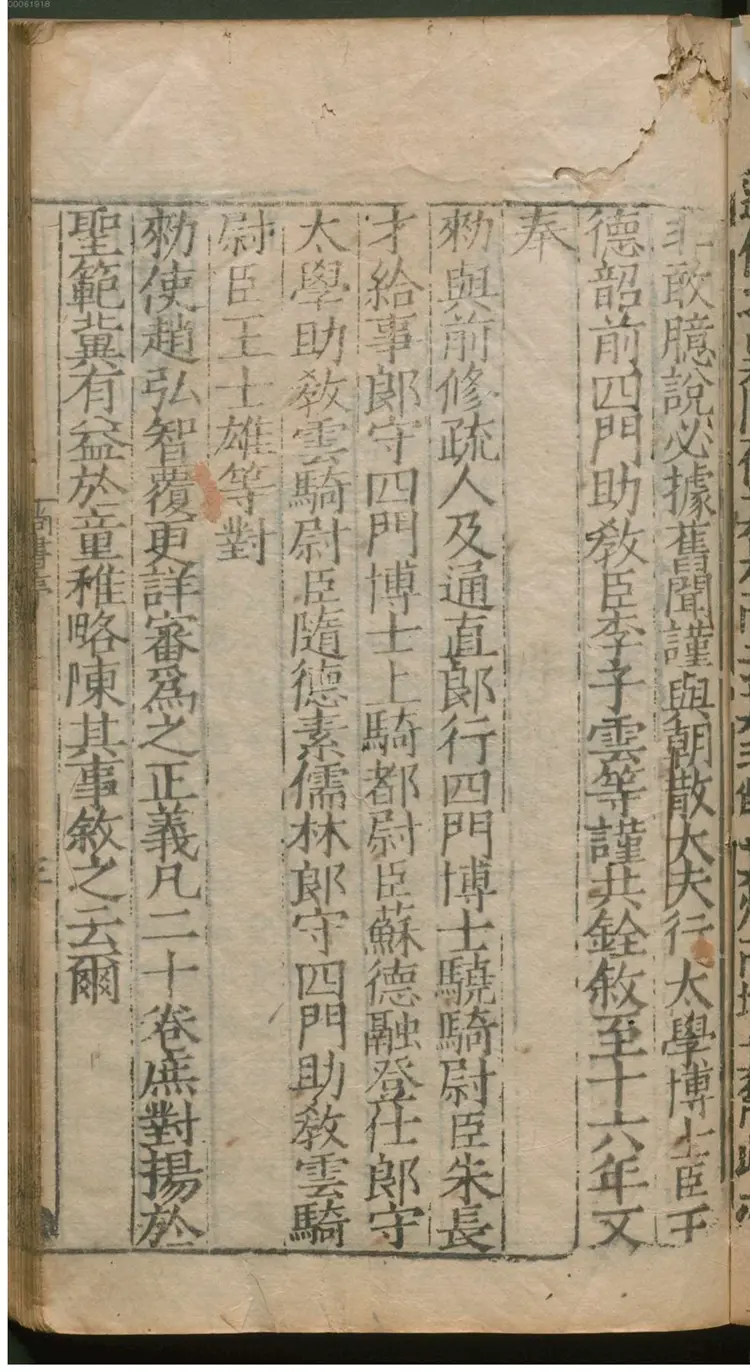 非敢臆說必據舊聞謹與朝散大夫行太學博士臣王
德韶前四門助敎臣李子雲等謹共銓敘至十六年又
奉
勑與前修疏人及通直郎行四門博士驍騎尉臣朱長
才給事郎守四門博士上騎都尉臣蘇德融登仕郎守
太學助敎雲騎尉臣隨德素儒林郎守四門助敎雲騎
尉臣王士雄等對
勑使趙弘智覆更詳審爲之正義凡二十卷庶對揚於
聖範冀有益於童稚略陳其事敘之云爾
尚書序
00061918